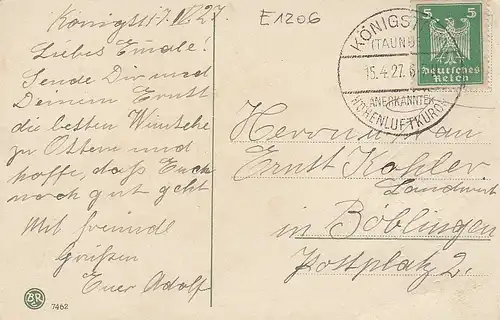 Königst. 17. IV. 27.
Liebes Emale!
Sende Dir und
Deinem Ernst
die besten Wünsche
zu Ostern und
hoffe, dass Euch
noch gut geht
Mit freundl
Grüßen
Euer Adolf
7462
E1206
KÖNIGST
(TAUNU
15.4.27.6
ANERKANNTER
HÖHENLUFTKURO
5 5
Deutsches
Reich
Herrn u. Frau
Ernst Kohler
Landwirt
in Böblingen
Postplatz 2.